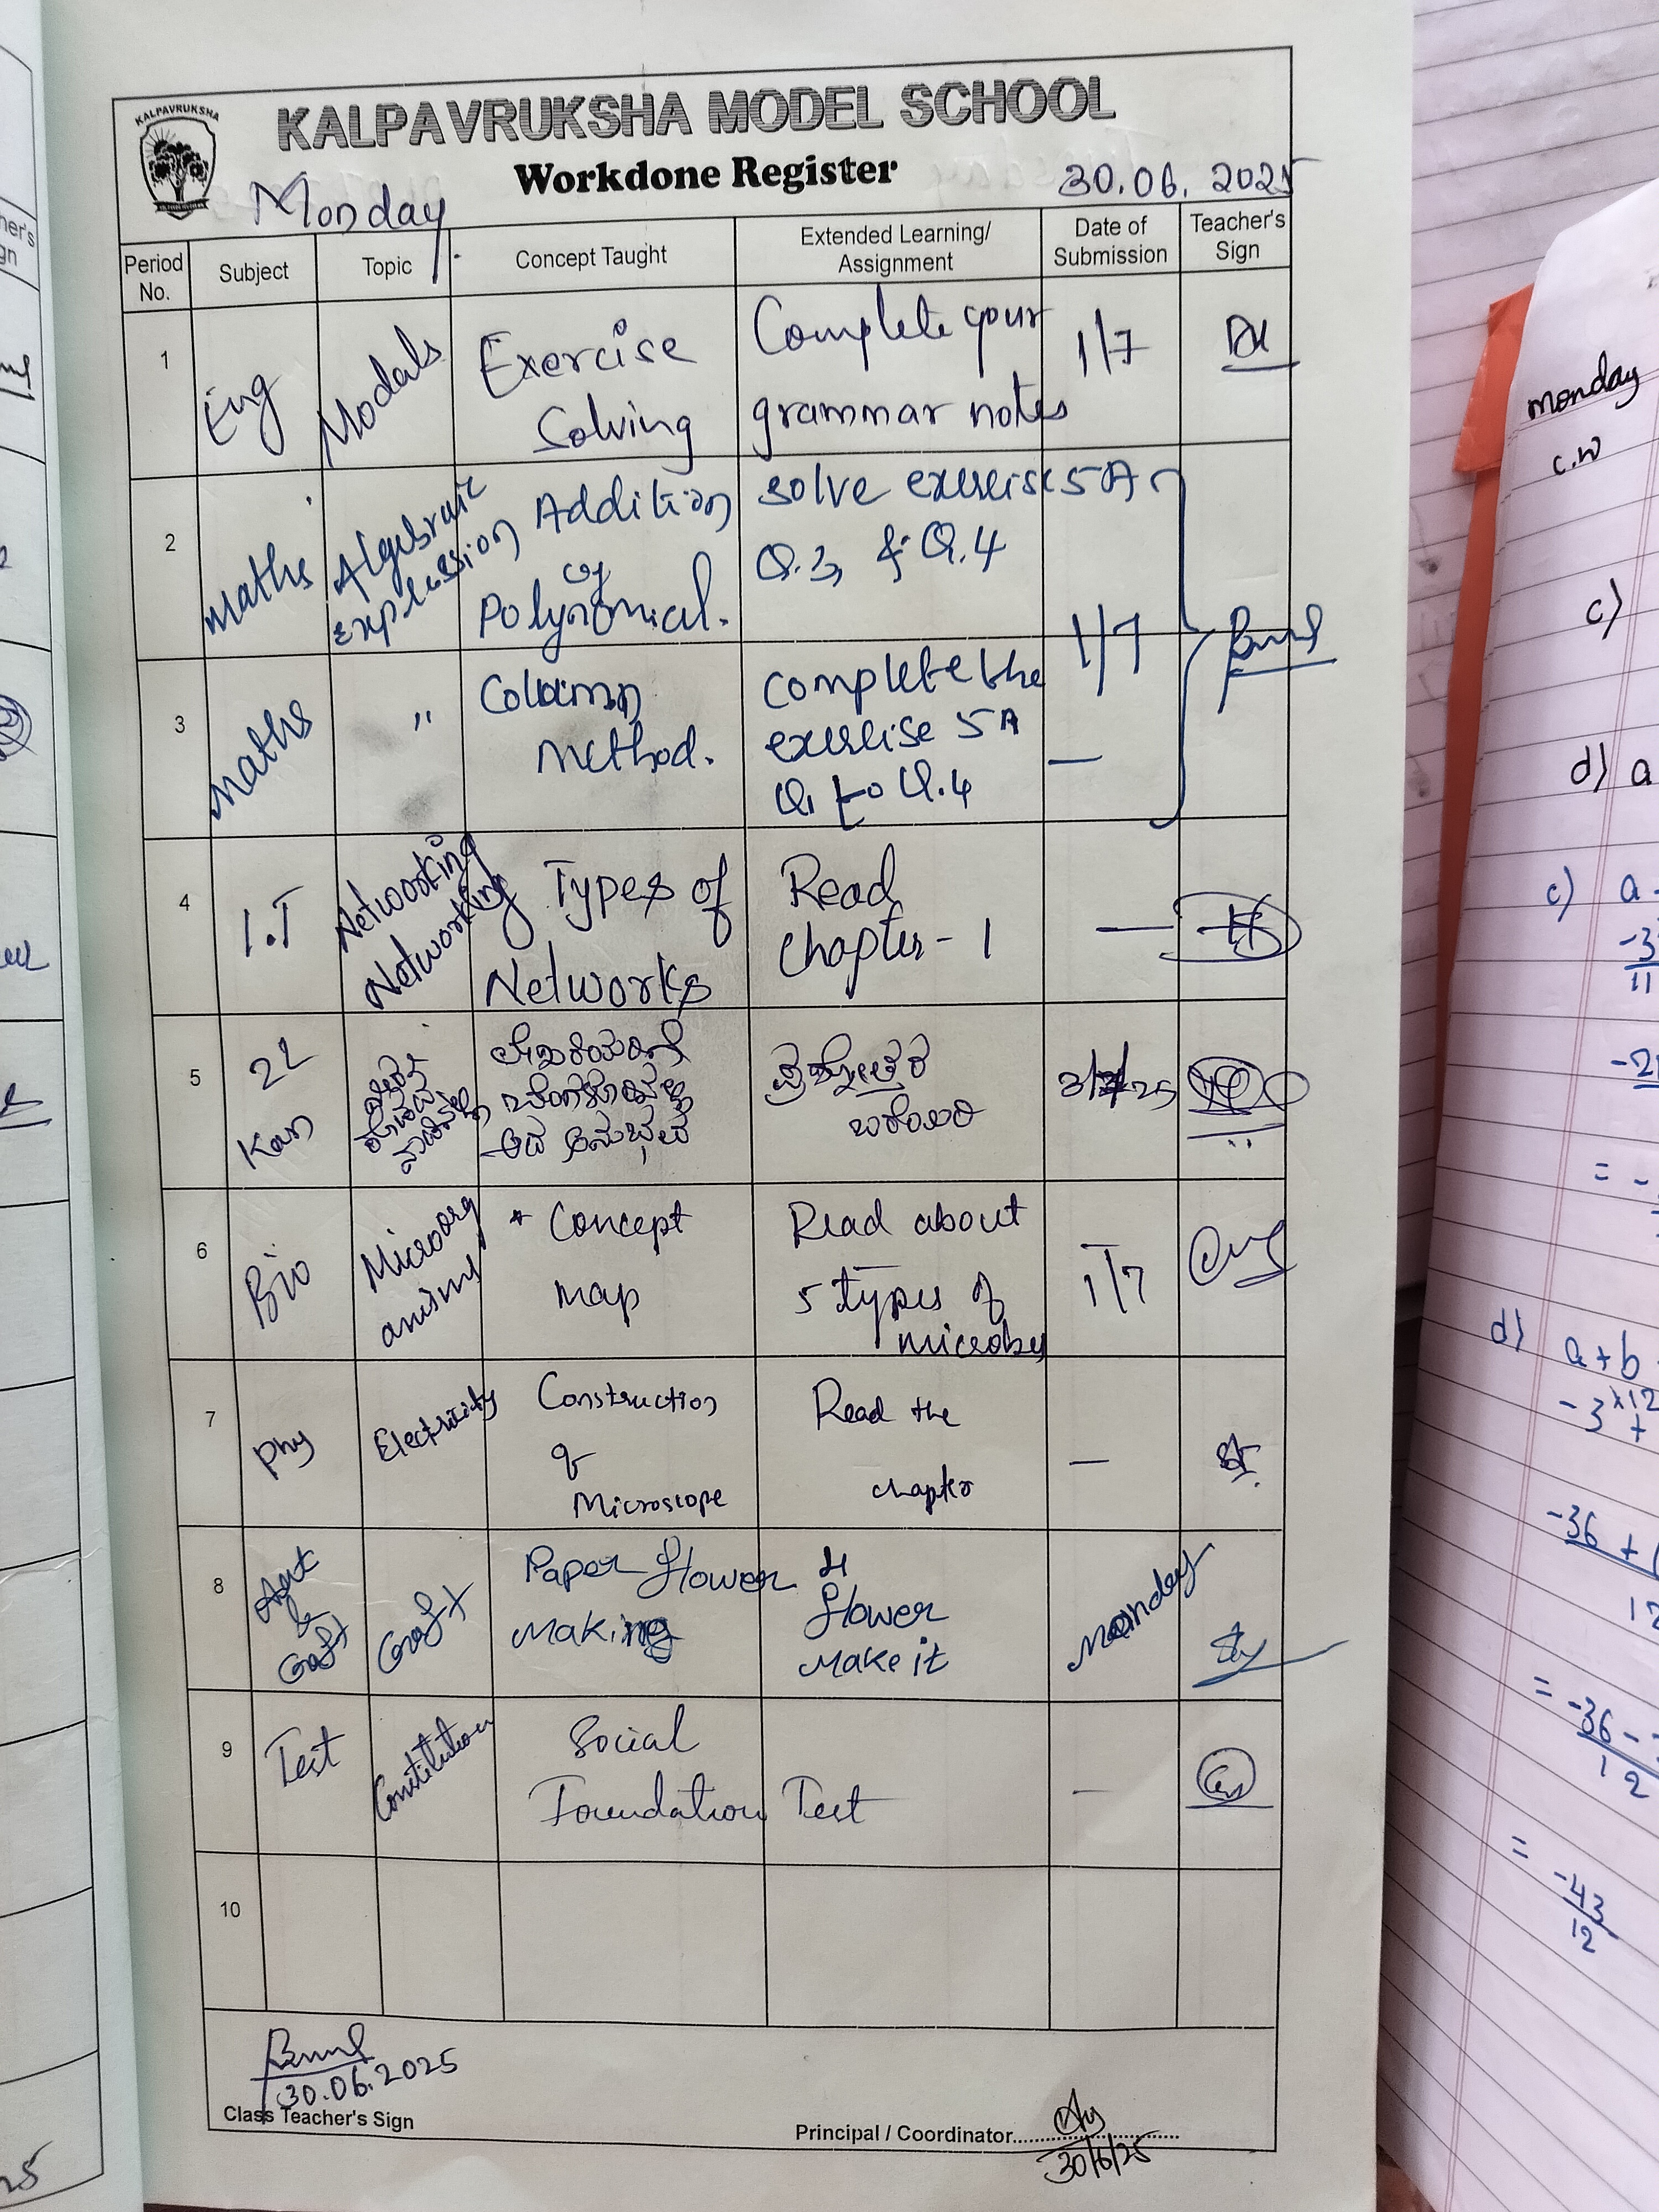 KALPAVRUKSHA
KALPAVRUKSHA MODEL SCHOOL
Workdone Register
Monday
30.06.2025
Period No.
Subject
Topic
Concept Taught
Extended Learning/ Assignment
Date of Submission
Teacher's Sign
1
Eng
Modals
Exercise
Solving
Complete your
grammar notes
1/7
2
maths
Algebraic
expression
Addition
of
Polynomial.
solve exercise 5A
Q.3, & Q.4
1/7
3
maths
"
Column
method.
complete the
exercise 5A
Q1 to Q.4
—
4
I.T
Networking
Networking
Types of
Networks
Read
chapter - 1
—
5
2L
Kan
ಪ್ರಶ್ನೋತ್ತರ
6
Bio
Microorg
anisms
* Concept
map
Read about
5 types of
microbes
1/7
7
Phy
Electricity
Construction
of
Microscope
Read the
chapter
—
8
Art
&
Craft
Craft
Paper flower
Making
flower
Make it
Monday
9
Test
Constitution
Social
Foundation Test
—
10
30.06.2025
Class Teacher's Sign
Principal / Coordinator
30/6/25
monday
c.w
c)
d) a
c) a
-3
11
-2
= -
d) a+b
-3
+
-36 +
12
= -36 -
12
= -43
12